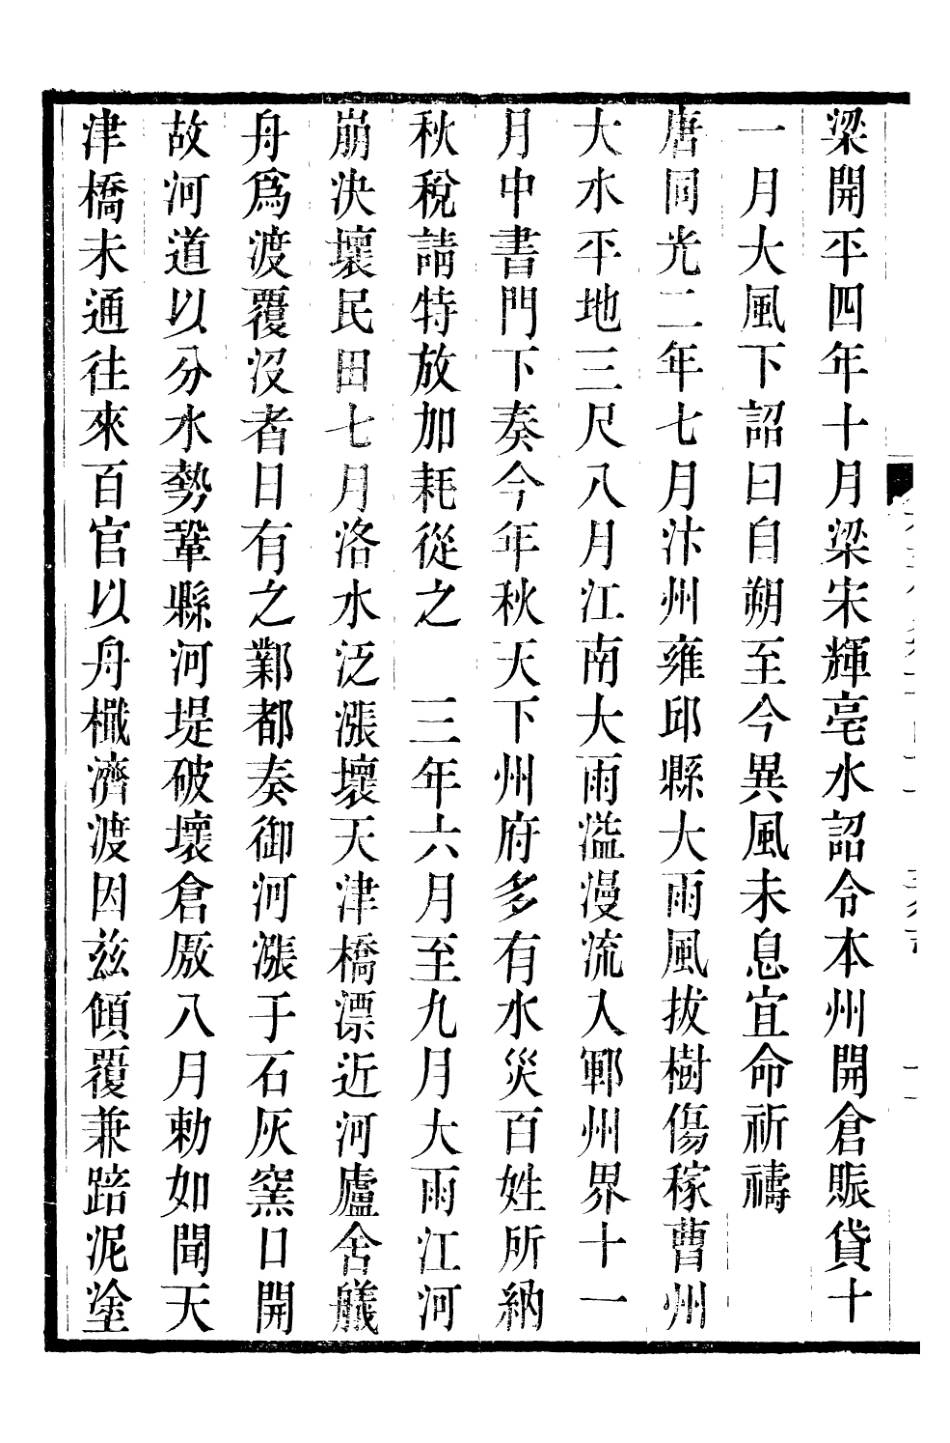 梁開平四年十月梁宋輝亳水詔令本州開倉賑貸十
一月大風下詔曰自朔至今異風未息宜命祈禱
唐同光二年七月汴州雍邱縣大雨風拔樹傷稼曹州
大水平地三尺八月江南大雨溢漫流入鄆州界十一
月中書門下奏今年秋天下州府多有水災百姓所納
秋稅請特放加耗從之　三年六月至九月大雨江河
崩決壞民田七月洛水泛漲壞天津橋漂近河廬舍艤
舟爲渡覆沒者日有之鄴都奏御河漲于石灰窯口開
故河道以分水勢鞏縣河堤破壞倉厫八月勅如聞天
津橋未通往來百官以舟檝濟渡因兹傾覆兼踣泥塗